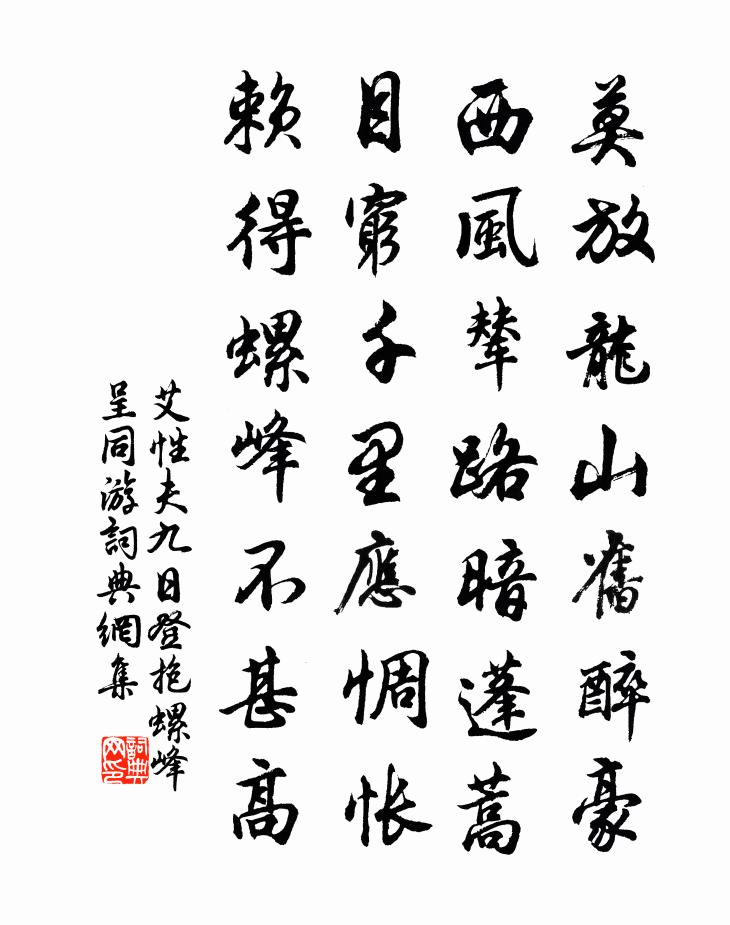 莫放龍山舊醉豪
西風輦路暗蓬蒿
目窮千里應惆悵
賴得螺峰不甚高
艾性夫九日登抱螺峰
呈同游詞典網集
詞典网印